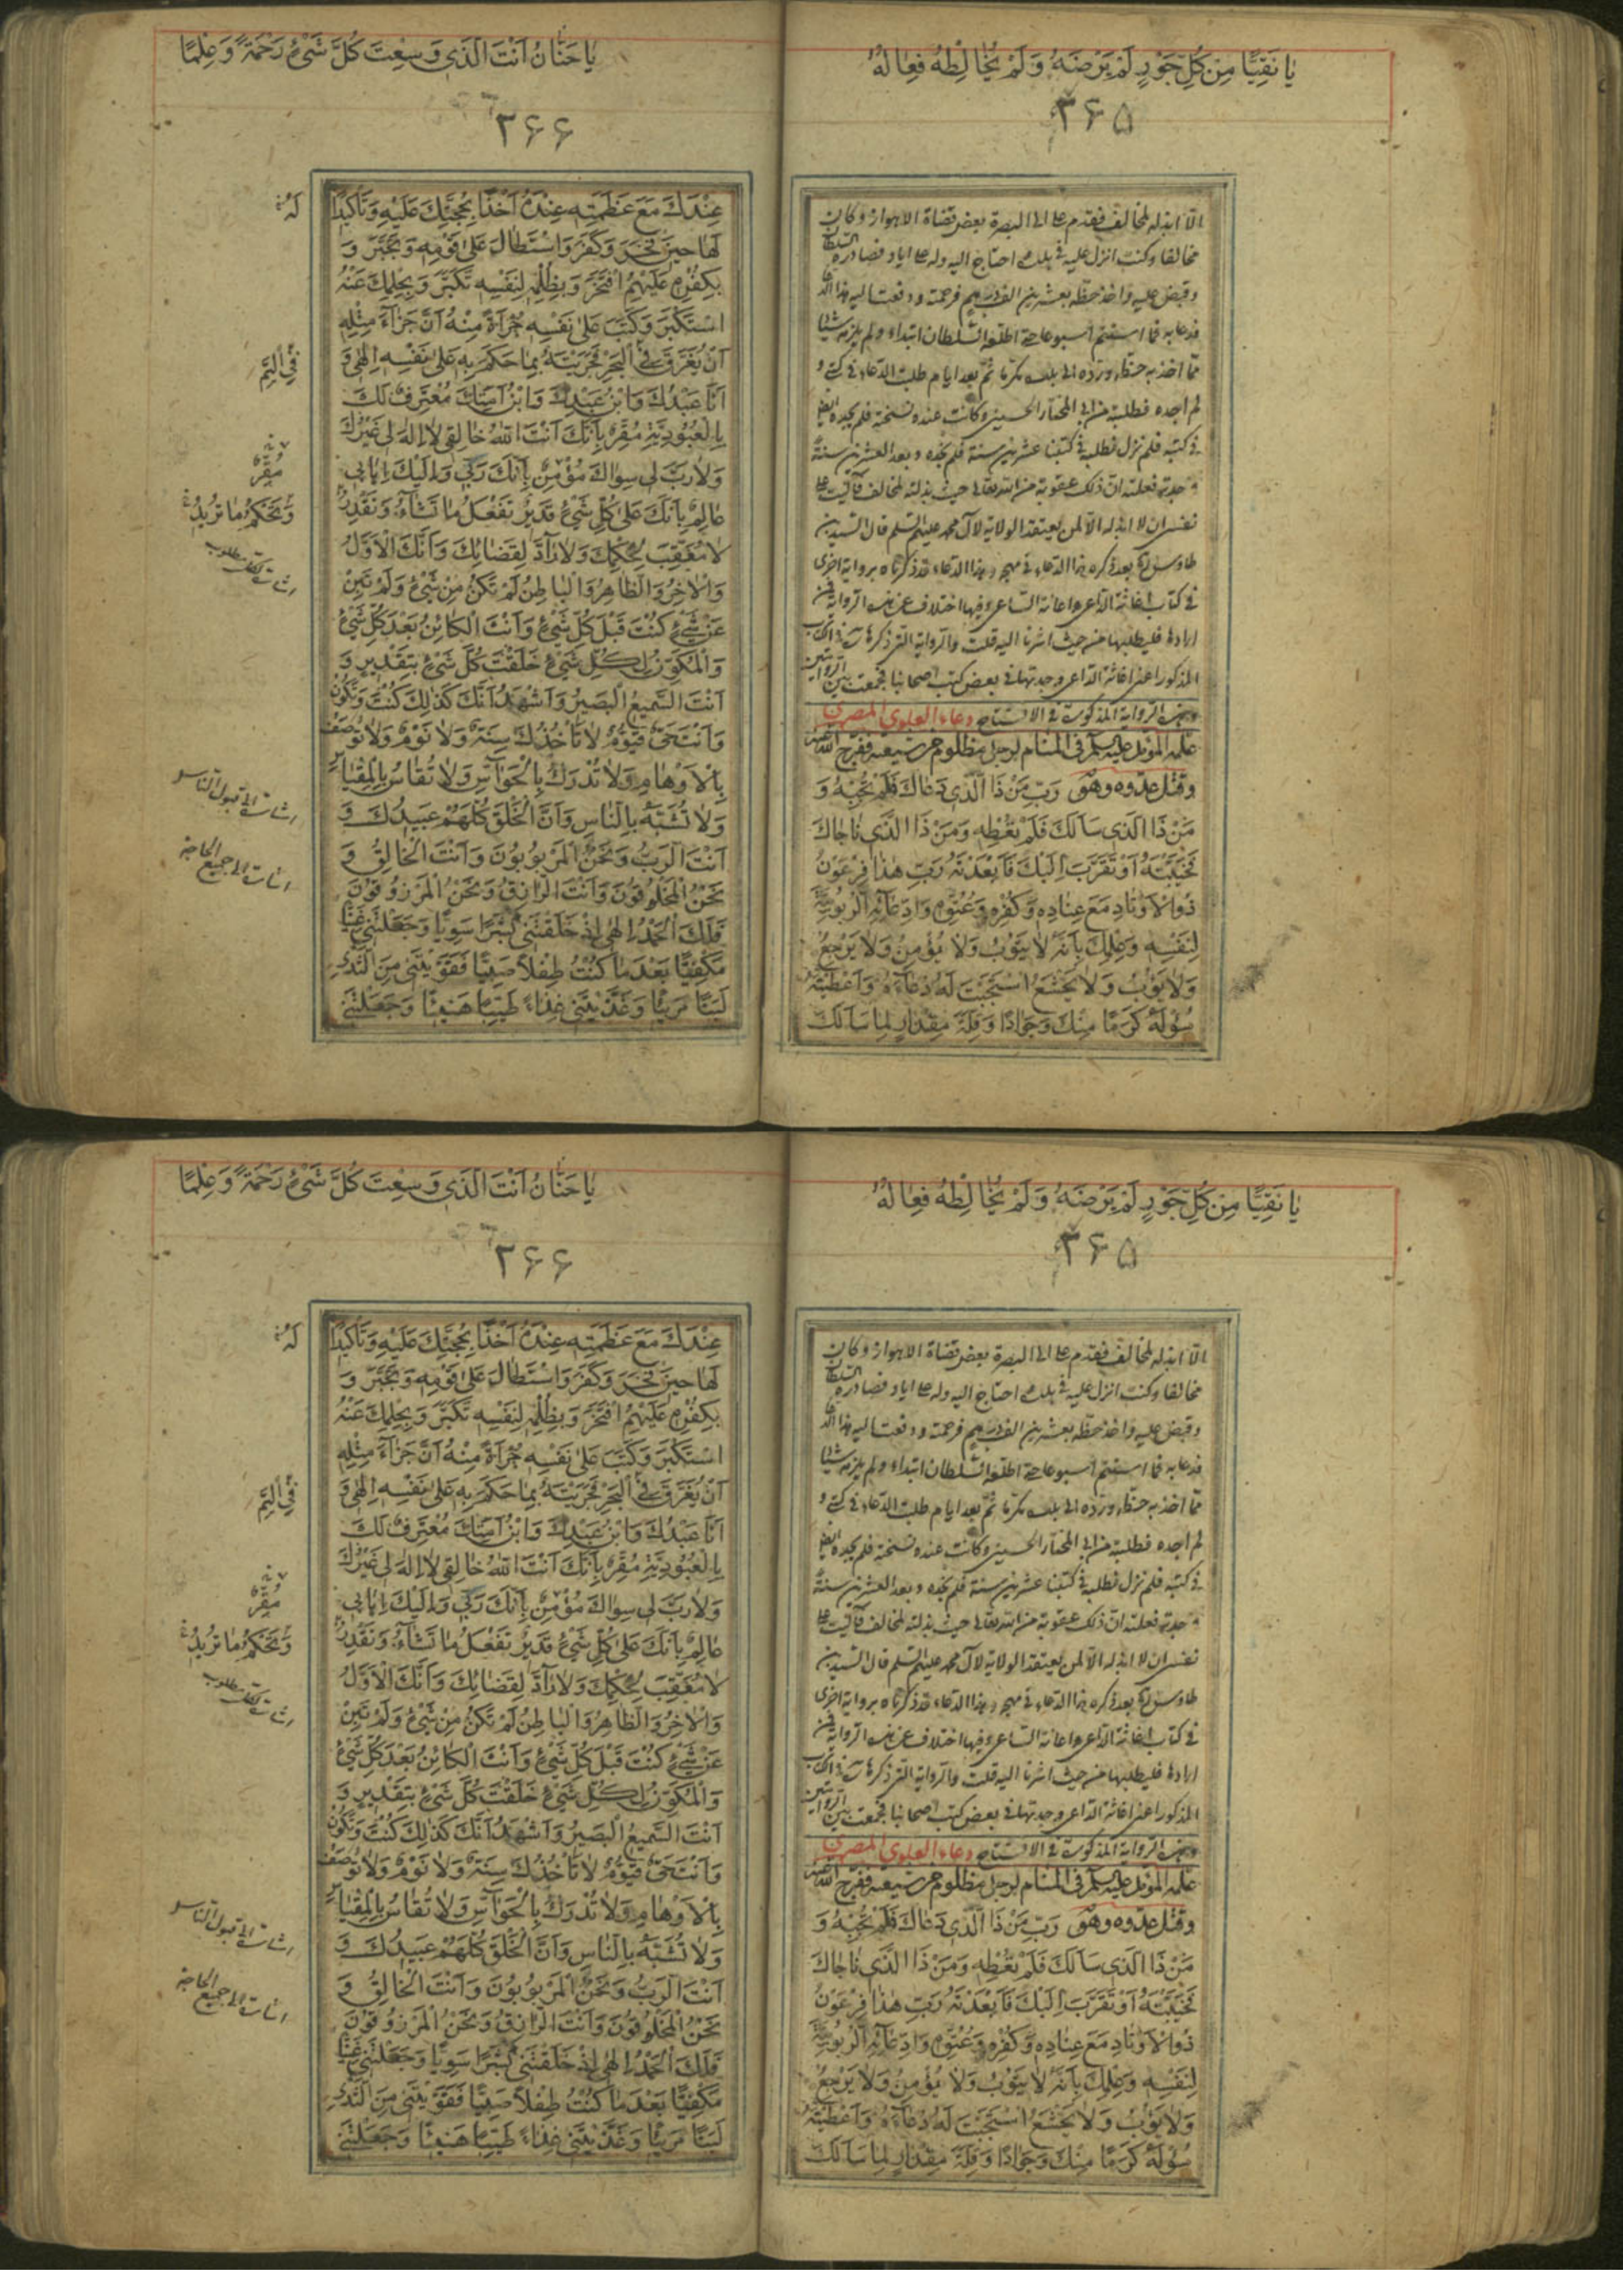 يا نَقِيًّا مِنْ كُلِّ جَوْرٍ لَمْ يَرْضَهُ وَلَمْ يُخالِطْهُ فِعالُهُ
۳۶۵
الا ابذله لمخالف فقدم علی الی البصرة بعض قضاة الاهواز وکان
مخالفا وکنت انزل علیه فی بلده احتاج الیه وله علی ایاد فصادره السلطان
وقبض علیه واخذ خطه بعشرین الف درهم فرحمته ودفعت الیه هذا الدعاء
فدعا به فما استتم اسبوعا حتی اطلقه السلطان ابتداء ولم یلزمه شیئا
مما اخذ به خطه ورده الی بلده مکرما ثم بعد ایام طلبت الدعاء فی کتبی و
لم اجده فطلبته من ابی المختار الحسینی وکانت عنده نسخة فلم یجده ایضا
فی کتبه فلم نزل نطلبه فی کتبنا عشرین سنة فلم نجده وبعد العشرین سنة
وجدته فعلمت ان ذلک عقوبة من الله تعالی حیث بذلته لمخالف فآلیت علی
نفسی ان لا ابذله الا لمن یعتقد الولایة لآل محمد علیهم السلم قال السید بن
طاوس بعد ذکره هذا الدعاء فی مهجه وهذا الدعاء قد ذکرناه بروایة اخری
فی کتاب اغاثة الداعی واعانة الساعی وفیها اختلاف عن هذه الروایة فمن
ارادها فلیطلبها من حیث اشرنا الیه قلت والروایة التی ذکرها فی الکتاب
المذکور اعنی اغاثة الداعی وجدتها فی بعض کتب اصحابنا فجمعت بین الروایتین
الروایة المذکورة فی الافتتاح دعاء العلوی المصری
علمه المؤمل علیه سلم فی المنام لرجل مظلوم من شیعته ففرج الله عنه
وقتل عدوه وهو رَبِّ مَنْ ذَا الَّذي دَعاكَ فَلَمْ تُجِبْهُ وَ
مَنْ ذَا الَّذي سَاَلَكَ فَلَمْ تُعْطِهِ وَمَنْ ذَا الَّذي ناجاكَ
فَخَيَّبْتَهُ اَوْ تَقَرَّبَ اِلَيْكَ فَاَبْعَدْتَهُ رَبِّ هٰذا فِرْعَوْنُ
ذُوالْاَوْتادِ مَعَ عِنادِهِ وَكُفْرِهِ وَعُتُوِّهِ وَادِّعائِهِ الرُّبُوبِيَّةَ
لِنَفْسِهِ وَعِلْمِكَ بِاَنَّهُ لا يَتُوبُ وَلا يُؤْمِنُ وَلا يَرْجِعُ
وَلا يَؤُبُ وَلا يَخْشَعُ اسْتَجَبْتَ لَهُ دُعاءَهُ وَاَعْطَيْتَهُ
سُؤْلَهُ كَرَمًا مِنْكَ وَجُوادًا وَقِلَّةَ مِقْدارٍ لِما سَاَلَكَ
يا حَنّانُ اَنْتَ الَّذي وَسِعْتَ كُلَّ شَيْءٍ رَحْمَةً وَعِلْمًا
۳۶۶
عِنْدَكَ مَعَ عَظَمَتِهِ عِنْدَهُ اَخْذًا بِحُجَّتِكَ عَلَيْهِ وَتَأْكيدًا
لَهُ
لَها حينَ فَجَرَ وَكَفَرَ وَاسْتَطالَ عَلى قَوْمِهِ وَتَجَبَّرَ وَ
بِكُفْرِهِ عَلَيْهِمُ افْتَخَرَ وَبِظُلْمِهِ لِنَفْسِهِ تَكَبَّرَ وَبِحِلْمِكَ عَنْهُ
اسْتَكْبَرَ وَكَتَبَ عَلى نَفْسِهِ جُرْأَةً مِنْهُ اَنَّ جَزاءَ مِثْلِهِ
اَنْ يُغْرَقَ فِي الْبَحْرِ فَجَزَيْتَهُ بِما حَكَمَ بِهِ عَلى نَفْسِهِ اِلهي وَ
فِي الْيَمِّ
اَنَا عَبْدُكَ وَابْنُ عَبْدِكَ وَابْنُ اَمَتِكَ مُعْتَرِفٌ لَكَ
بِالْعُبُودِيَّةِ مُقِرٌّ بِاَنَّكَ اَنْتَ اللهُ خالِقي لا اِلهَ لي غَيْرُكَ
وَلا رَبَّ لي سِواكَ مُؤْمِنٌ بِاَنَّكَ رَبّي وَاِلَيْكَ اِيابي
مُقِرٌّ
عالِمٌ بِاَنَّكَ عَلى كُلِّ شَيْءٍ قَديرٌ تَفْعَلُ ما تَشاءُ وَتَقْدِرُ
وَتَحْكُمُ ما تُريدُ
لا مُعَقِّبَ لِحُكْمِكَ وَلا رادَّ لِقَضائِكَ وَاَنَّكَ الْاَوَّلُ
وَالْاخِرُ وَالظّاهِرُ وَالْباطِنُ لَمْ تَكُنْ مِنْ شَيْءٍ وَلَمْ تَبِنْ
عَنْ شَيْءٍ كُنْتَ قَبْلَ كُلِّ شَيْءٍ وَاَنْتَ الْكائِنُ بَعْدَ كُلِّ شَيْءٍ
وَالْمُكَوِّنُ لِكُلِّ شَيْءٍ خَلَقْتَ كُلَّ شَيْءٍ بِتَقْديرٍ وَ
اَنْتَ السَّميعُ الْبَصيرُ وَاَشْهَدُ اَنَّكَ كَذلِكَ كُنْتَ وَتَكُونُ
وَاَنْتَ حَيٌّ قَيُّومٌ لا تَأْخُذُكَ سِنَةٌ وَلا نَوْمٌ وَلا تُوصَفُ
بِالْاَوْهامِ وَلا تُدْرَكُ بِالْحَواسِّ وَلا تُقاسُ بِالْمِقْياسِ
وَلا تُشَبَّهُ بِالنّاسِ وَاَنَّ الْخَلْقَ كُلَّهُمْ عَبيدُكَ وَ
اَنْتَ الرَّبُّ وَنَحْنُ الْمَرْبُوبُونَ وَاَنْتَ الْخالِقُ وَ
نَحْنُ الْمَخْلُوقُونَ وَاَنْتَ الرّازِقُ وَنَحْنُ الْمَرْزُوقُونَ
فَلَكَ الْحَمْدُ اِلهي اِذْ خَلَقْتَني بَشَرًا سَوِيًّا وَجَعَلْتَني غَنِيًّا
مَكْفِيًّا بَعْدَ ما كُنْتُ طِفْلًا صَبِيًّا فَقَوَّيْتَني مِنَ الثَّدْيِ
لَبَنًا مَريئًا وَغَذَّيْتَني غِذاءً طَيِّبًا هَنيئًا وَجَعَلْتَني
يا نَقِيًّا مِنْ كُلِّ جَوْرٍ لَمْ يَرْضَهُ وَلَمْ يُخالِطْهُ فِعالُهُ
۳۶۵
الا ابذله لمخالف فقدم علی الی البصرة بعض قضاة الاهواز وکان
مخالفا وکنت انزل علیه فی بلده احتاج الیه وله علی ایاد فصادره السلطان
وقبض علیه واخذ خطه بعشرین الف درهم فرحمته ودفعت الیه هذا الدعاء
فدعا به فما استتم اسبوعا حتی اطلقه السلطان ابتداء ولم یلزمه شیئا
مما اخذ به خطه ورده الی بلده مکرما ثم بعد ایام طلبت الدعاء فی کتبی و
لم اجده فطلبته من ابی المختار الحسینی وکانت عنده نسخة فلم یجده ایضا
فی کتبه فلم نزل نطلبه فی کتبنا عشرین سنة فلم نجده وبعد العشرین سنة
وجدته فعلمت ان ذلک عقوبة من الله تعالی حیث بذلته لمخالف فآلیت علی
نفسی ان لا ابذله الا لمن یعتقد الولایة لآل محمد علیهم السلم قال السید بن
طاوس بعد ذکره هذا الدعاء فی مهجه وهذا الدعاء قد ذکرناه بروایة اخری
فی کتاب اغاثة الداعی واعانة الساعی وفیها اختلاف عن هذه الروایة فمن
ارادها فلیطلبها من حیث اشرنا الیه قلت والروایة التی ذکرها فی الکتاب
المذکور اعنی اغاثة الداعی وجدتها فی بعض کتب اصحابنا فجمعت بین الروایتین
الروایة المذکورة فی الافتتاح دعاء العلوی المصری
علمه المؤمل علیه سلم فی المنام لرجل مظلوم من شیعته ففرج الله عنه
وقتل عدوه وهو رَبِّ مَنْ ذَا الَّذي دَعاكَ فَلَمْ تُجِبْهُ وَ
مَنْ ذَا الَّذي سَاَلَكَ فَلَمْ تُعْطِهِ وَمَنْ ذَا الَّذي ناجاكَ
فَخَيَّبْتَهُ اَوْ تَقَرَّبَ اِلَيْكَ فَاَبْعَدْتَهُ رَبِّ هٰذا فِرْعَوْنُ
ذُوالْاَوْتادِ مَعَ عِنادِهِ وَكُفْرِهِ وَعُتُوِّهِ وَادِّعائِهِ الرُّبُوبِيَّةَ
لِنَفْسِهِ وَعِلْمِكَ بِاَنَّهُ لا يَتُوبُ وَلا يُؤْمِنُ وَلا يَرْجِعُ
وَلا يَؤُبُ وَلا يَخْشَعُ اسْتَجَبْتَ لَهُ دُعاءَهُ وَاَعْطَيْتَهُ
سُؤْلَهُ كَرَمًا مِنْكَ وَجُوادًا وَقِلَّةَ مِقْدارٍ لِما سَاَلَكَ
يا حَنّانُ اَنْتَ الَّذي وَسِعْتَ كُلَّ شَيْءٍ رَحْمَةً وَعِلْمًا
۳۶۶
عِنْدَكَ مَعَ عَظَمَتِهِ عِنْدَهُ اَخْذًا بِحُجَّتِكَ عَلَيْهِ وَتَأْكيدًا
لَهُ
لَها حينَ فَجَرَ وَكَفَرَ وَاسْتَطالَ عَلى قَوْمِهِ وَتَجَبَّرَ وَ
بِكُفْرِهِ عَلَيْهِمُ افْتَخَرَ وَبِظُلْمِهِ لِنَفْسِهِ تَكَبَّرَ وَبِحِلْمِكَ عَنْهُ
اسْتَكْبَرَ وَكَتَبَ عَلى نَفْسِهِ جُرْأَةً مِنْهُ اَنَّ جَزاءَ مِثْلِهِ
اَنْ يُغْرَقَ فِي الْبَحْرِ فَجَزَيْتَهُ بِما حَكَمَ بِهِ عَلى نَفْسِهِ اِلهي وَ
فِي الْيَمِّ
اَنَا عَبْدُكَ وَابْنُ عَبْدِكَ وَابْنُ اَمَتِكَ مُعْتَرِفٌ لَكَ
بِالْعُبُودِيَّةِ مُقِرٌّ بِاَنَّكَ اَنْتَ اللهُ خالِقي لا اِلهَ لي غَيْرُكَ
وَلا رَبَّ لي سِواكَ مُؤْمِنٌ بِاَنَّكَ رَبّي وَاِلَيْكَ اِيابي
مُقِرٌّ
عالِمٌ بِاَنَّكَ عَلى كُلِّ شَيْءٍ قَديرٌ تَفْعَلُ ما تَشاءُ وَتَقْدِرُ
وَتَحْكُمُ ما تُريدُ
لا مُعَقِّبَ لِحُكْمِكَ وَلا رادَّ لِقَضائِكَ وَاَنَّكَ الْاَوَّلُ
وَالْاخِرُ وَالظّاهِرُ وَالْباطِنُ لَمْ تَكُنْ مِنْ شَيْءٍ وَلَمْ تَبِنْ
عَنْ شَيْءٍ كُنْتَ قَبْلَ كُلِّ شَيْءٍ وَاَنْتَ الْكائِنُ بَعْدَ كُلِّ شَيْءٍ
وَالْمُكَوِّنُ لِكُلِّ شَيْءٍ خَلَقْتَ كُلَّ شَيْءٍ بِتَقْديرٍ وَ
اَنْتَ السَّميعُ الْبَصيرُ وَاَشْهَدُ اَنَّكَ كَذلِكَ كُنْتَ وَتَكُونُ
وَاَنْتَ حَيٌّ قَيُّومٌ لا تَأْخُذُكَ سِنَةٌ وَلا نَوْمٌ وَلا تُوصَفُ
بِالْاَوْهامِ وَلا تُدْرَكُ بِالْحَواسِّ وَلا تُقاسُ بِالْمِقْياسِ
وَلا تُشَبَّهُ بِالنّاسِ وَاَنَّ الْخَلْقَ كُلَّهُمْ عَبيدُكَ وَ
اَنْتَ الرَّبُّ وَنَحْنُ الْمَرْبُوبُونَ وَاَنْتَ الْخالِقُ وَ
نَحْنُ الْمَخْلُوقُونَ وَاَنْتَ الرّازِقُ وَنَحْنُ الْمَرْزُوقُونَ
فَلَكَ الْحَمْدُ اِلهي اِذْ خَلَقْتَني بَشَرًا سَوِيًّا وَجَعَلْتَني غَنِيًّا
مَكْفِيًّا بَعْدَ ما كُنْتُ طِفْلًا صَبِيًّا فَقَوَّيْتَني مِنَ الثَّدْيِ
لَبَنًا مَريئًا وَغَذَّيْتَني غِذاءً طَيِّبًا هَنيئًا وَجَعَلْتَني